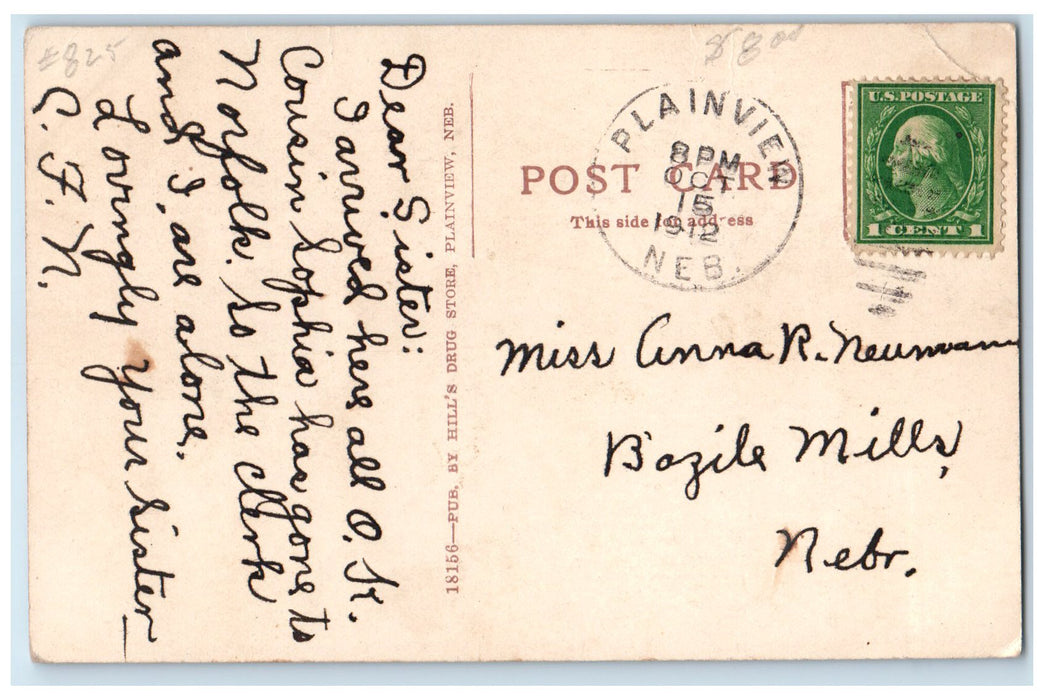 #825
Dear Sister:
I arrived here all O. K.
Cousin Sophia has gone to
Norfolk. So the clerk
and I, are alone.
Lovingly your sister
C. F. N.
18156—PUB. BY HILL'S DRUG STORE, PLAINVIEW, NEB.
PLAINVIEW
8 PM
OCT
15
1912
NEB.
POST CARD
This side for address
U.S. POSTAGE
1 CENT 1
Miss Anna R. Neumann
Bazile Mills,
Nebr.